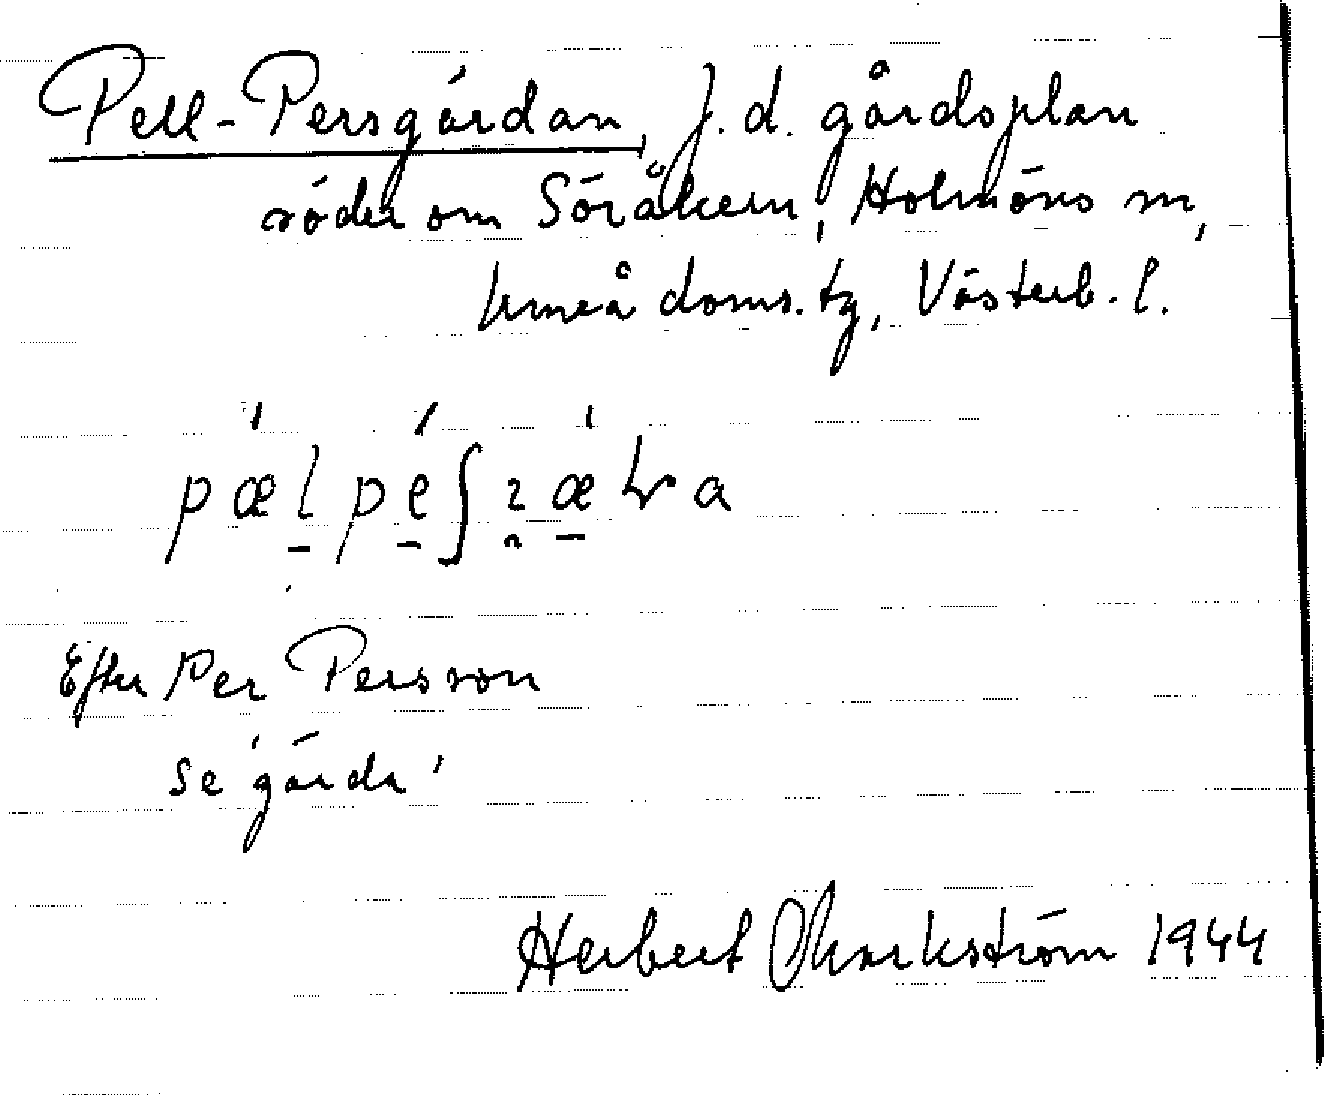 Pell-Persgårdan, f.d. gårdsplan
söder om Söråkern, Holmöns sn,
Umeå doms. tg, Västerb. l.
Efter Per Persson
se 'gårda'
Herbert Markström 1944